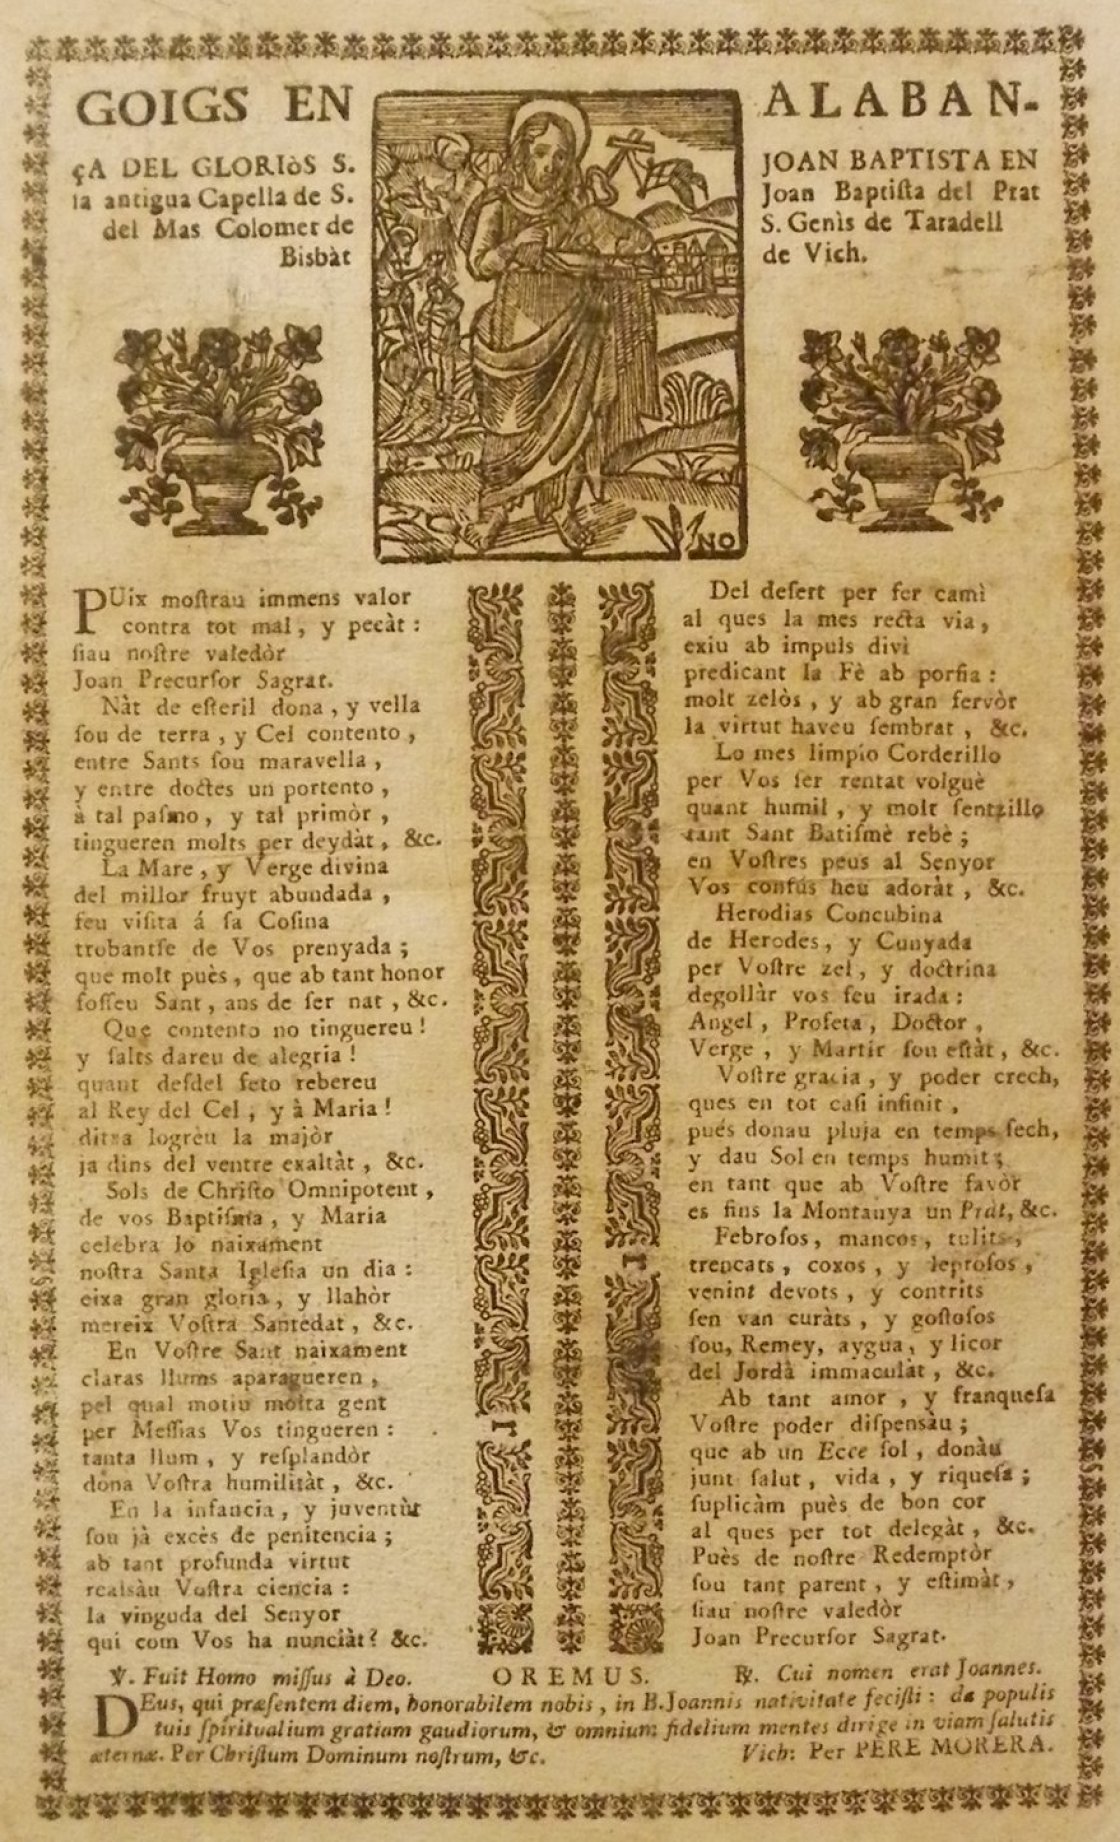 GOIGS EN ALABAN-
çA DEL GLORIòS S. JOAN BAPTISTA EN
la antigua Capella de S. Joan Baptiſta del Prat
del Mas Colomer de S. Genìs de Taradell
Bisbàt de Vich.
NO
PUix moſtrau immens valor
contra tot mal, y pecàt:
ſiau noſtre valedòr
Joan Precurſor Sagrat.
Nàt de eſteril dona, y vella
ſou de terra, y Cel contento,
entre Sants ſou maravella,
y entre doctes un portento,
à tal paſmo, y tal primòr,
tingueren molts per deydàt, &c.
La Mare, y Verge divina
del millor fruyt abundada,
feu viſita á ſa Coſina
trobantſe de Vos prenyada;
que molt puès, que ab tant honor
foſſeu Sant, ans de ſer nat, &c.
Que contento no tinguereu!
y ſalts dareu de alegria!
quant deſdel feto rebereu
al Rey del Cel, y à Maria!
ditxa logrèu la majòr
ja dins del ventre exaltàt, &c.
Sols de Chriſto Omnipotent,
de vos Baptiſma, y Maria
celebra lo naixament
noſtra Santa Igleſia un dia:
eixa gran gloria, y llahòr
mereix Voſtra Santedat, &c.
En Voſtre Sant naixament
claras llums aparagueren,
pel qual motiu molta gent
per Meſſias Vos tingueren:
tanta llum, y reſplandòr
dona Voſtra humilitàt, &c.
En la infancia, y juventùt
ſou jà excès de penitencia;
ab tant profunda virtut
realsàu Voſtra ciencia:
la vinguda del Senyor
qui com Vos ha nunciàt? &c.
Del deſert per fer camì
al ques la mes recta via,
exiu ab impuls divì
predicant la Fè ab porfia:
molt zelòs, y ab gran fervòr
la virtut haveu ſembrat, &c.
Lo mes limpio Corderillo
per Vos ſer rentat volguè
quant humil, y molt ſentzillo
tant Sant Batiſmè rebè;
en Voſtres peus al Senyor
Vos confús heu adoràt, &c.
Herodias Concubina
de Herodes, y Cunyada
per Voſtre zel, y doctrina
degollàr vos feu irada:
Angel, Profeta, Doctor,
Verge, y Martir ſou eſtàt, &c.
Voſtre gracia, y poder crech,
ques en tot caſi infinit,
pués donau pluja en temps ſech,
y dau Sol en temps humit;
en tant que ab Voſtre favòr
es fins la Montanya un Pràt, &c.
Febroſos, mancos, tulits,
trencats, coxos, y leproſos,
venint devots, y contrits
ſen van curàts, y goſtoſos
ſou, Remey, aygua, y licor
del Jordà immaculàt, &c.
Ab tant amor, y franqueſa
Voſtre poder diſpensàu;
que ab un Ecce ſol, donàu
junt ſalut, vida, y riqueſa;
ſuplicàm puès de bon cor
al ques per tot delegàt, &c.
Puès de noſtre Redemptòr
ſou tant parent, y eſtimàt,
ſiau noſtre valedòr
Joan Precurſor Sagrat.
℣. Fuit Homo miſſus à Deo. OREMUS. ℟. Cui nomen erat Joannes.
DEus, qui præſentem diem, honorabilem nobis, in B. Joannis nativitate feciſti: da populis
tuis ſpiritualium gratiam gaudiorum, & omnium fidelium mentes dirige in viam ſalutis
æternæ. Per Chriſtum Dominum noſtrum, &c. Vich: Per PERE MORERA.